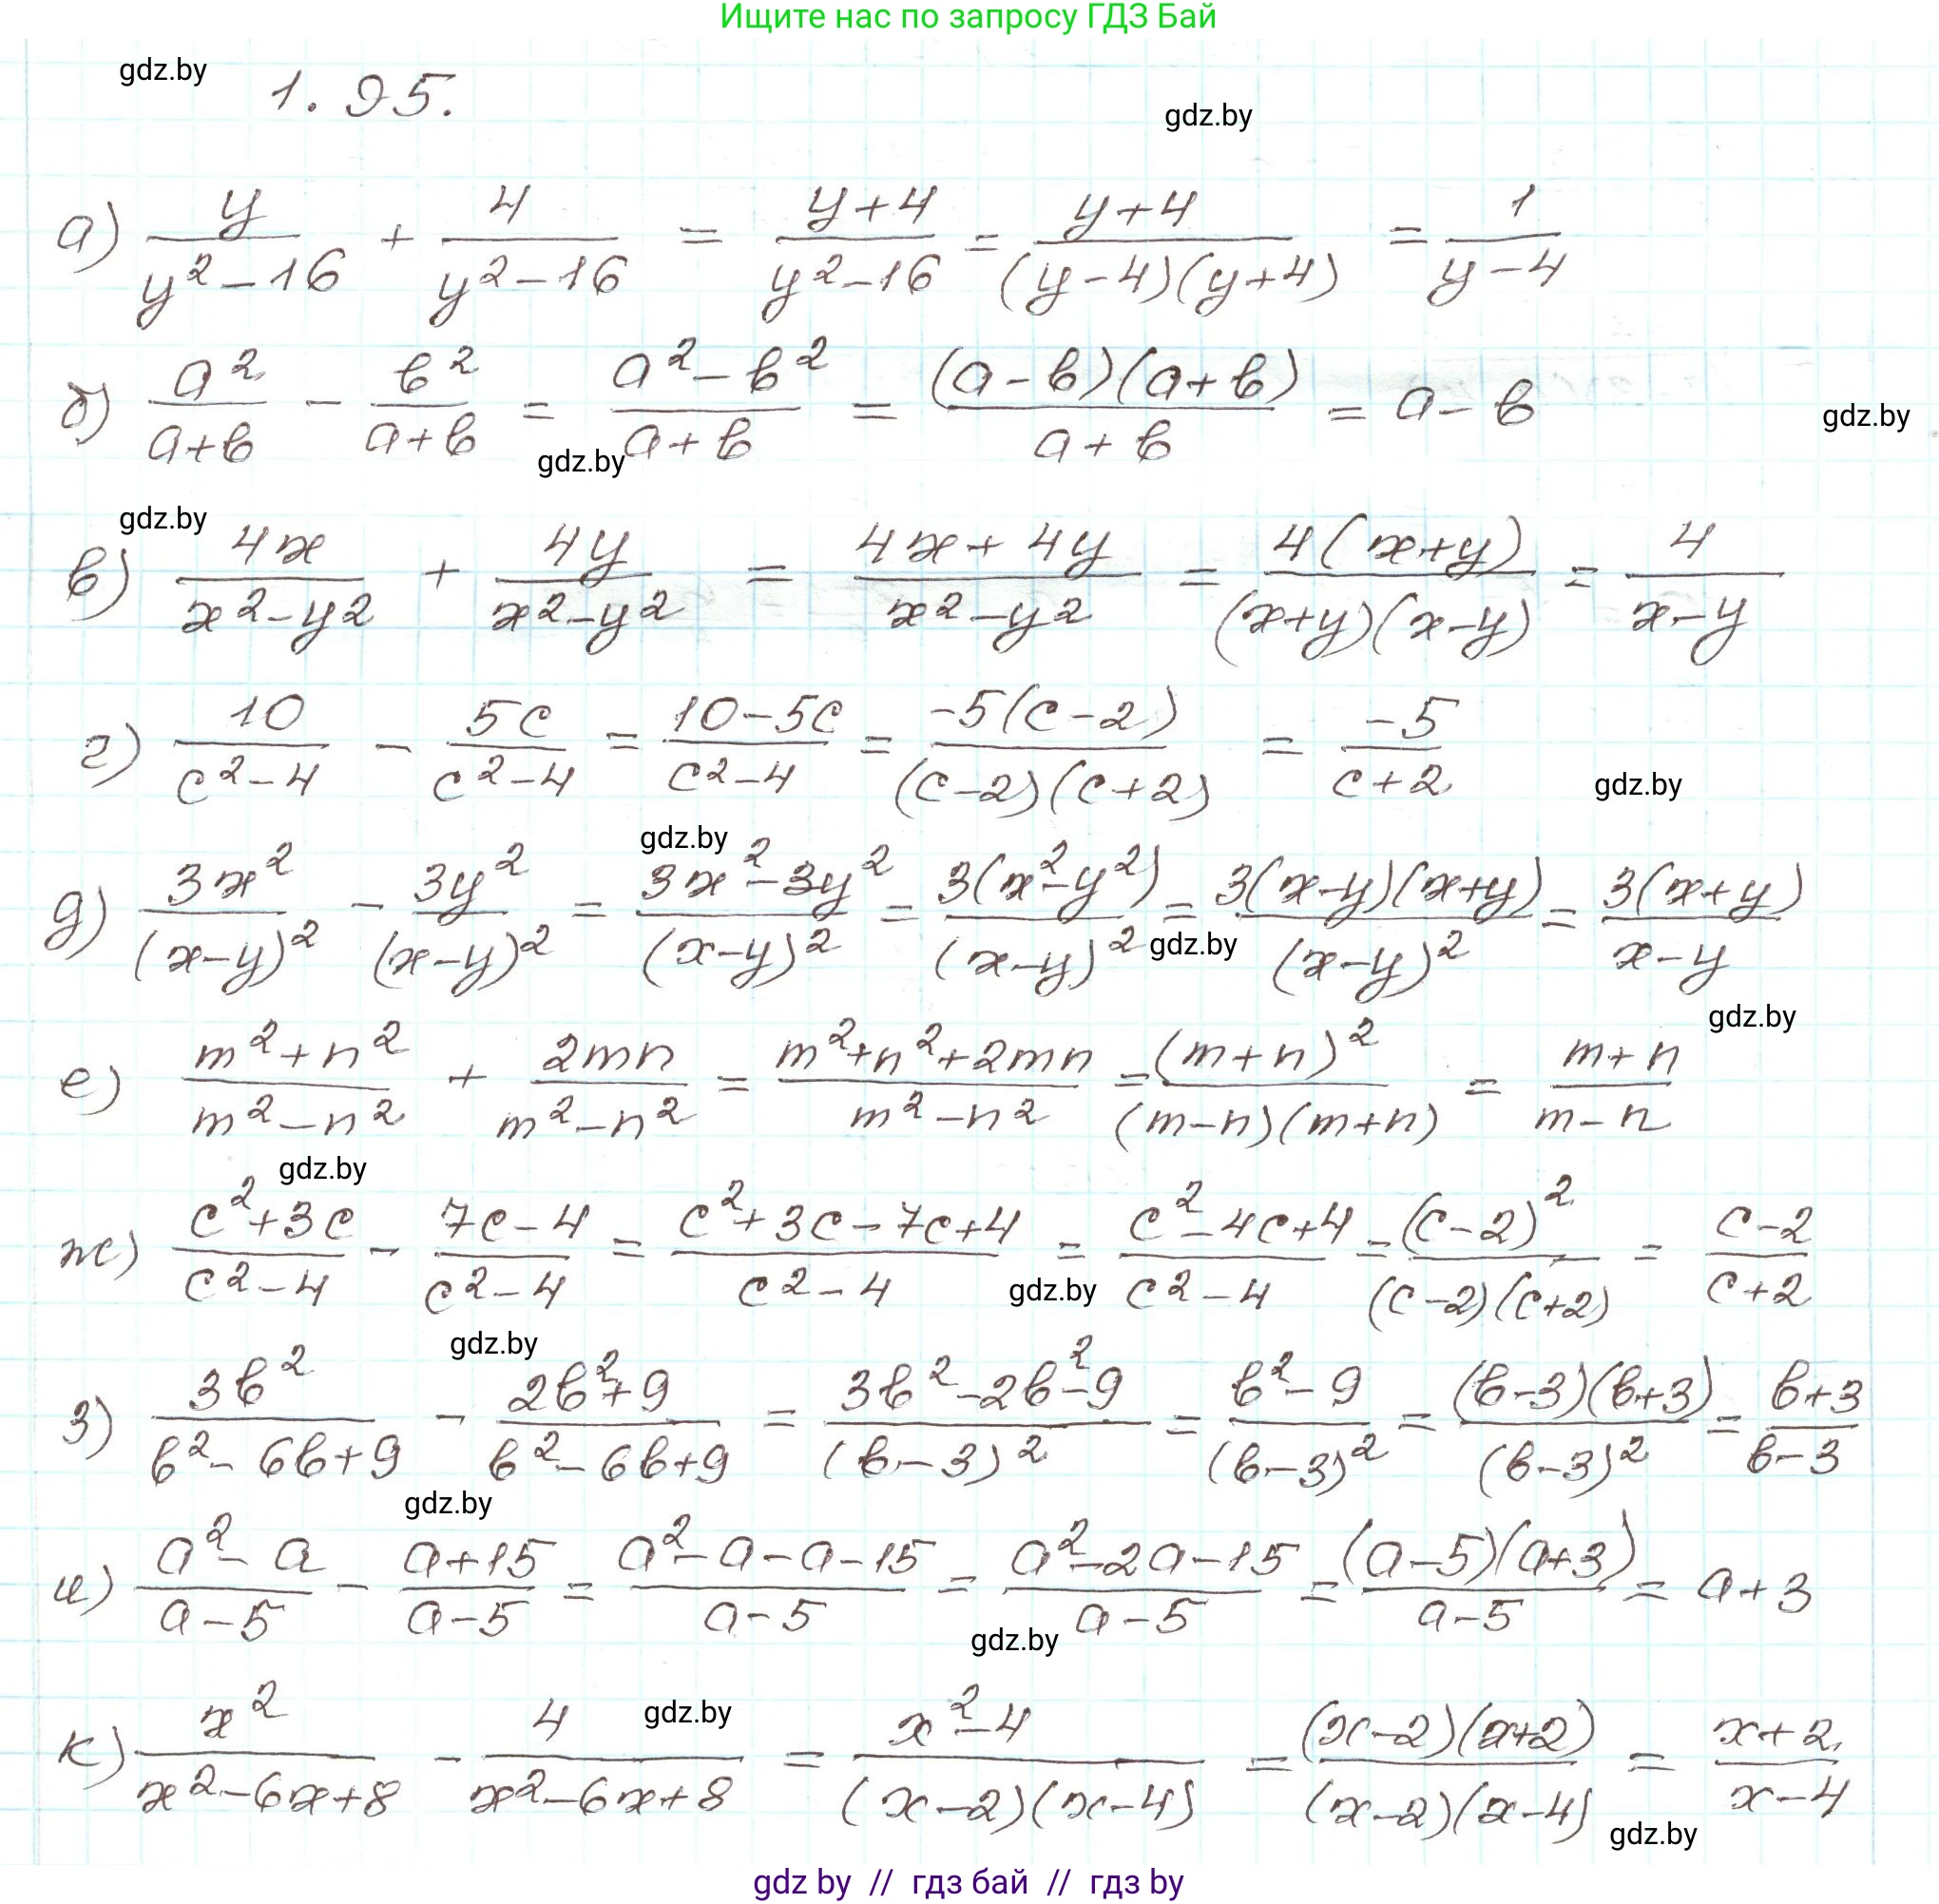 Ищите нас по запросу ГДЗ Бай
gdz.by
1.95.
gdz.by
а) y/(y²-16) + 4/(y²-16) = (y+4)/(y²-16) = (y+4)/((y-4)(y+4)) = 1/(y-4)
б) a²/(a+в) - в²/(a+в) = (a²-в²)/(a+в) = ((a-в)(a+в))/(a+в) = a-в
gdz.by
gdz.by
gdz.by
в) 4x/(x²-y²) + 4y/(x²-y²) = (4x+4y)/(x²-y²) = 4(x+y)/((x+y)(x-y)) = 4/(x-y)
г) 10/(c²-4) - 5c/(c²-4) = (10-5c)/(c²-4) = -5(c-2)/((c-2)(c+2)) = -5/(c+2)
gdz.by
gdz.by
д) 3x²/(x-y)² - 3y²/(x-y)² = (3x²-3y²)/(x-y)² = 3(x²-y²)/(x-y)² = 3(x-y)(x+y)/(x-y)² = 3(x+y)/(x-y)
gdz.by
gdz.by
е) (m²+n²)/(m²-n²) + 2mn/(m²-n²) = (m²+n²+2mn)/(m²-n²) = (m+n)²/((m-n)(m+n)) = (m+n)/(m-n)
gdz.by
ж) (c²+3c)/(c²-4) - (7c-4)/(c²-4) = (c²+3c-7c+4)/(c²-4) = (c²-4c+4)/(c²-4) = (c-2)²/((c-2)(c+2)) = (c-2)/(c+2)
gdz.by
gdz.by
з) 3в²/(в²-6в+9) - (2в²+9)/(в²-6в+9) = (3в²-2в²-9)/(в-3)² = (в²-9)/(в-3)² = (в-3)(в+3)/(в-3)² = (в+3)/(в-3)
gdz.by
и) (a²-a)/(a-5) - (a+15)/(a-5) = (a²-a-a-15)/(a-5) = (a²-2a-15)/(a-5) = (a-5)(a+3)/(a-5) = a+3
gdz.by
gdz.by
к) x²/(x²-6x+8) - 4/(x²-6x+8) = (x²-4)/((x-2)(x-4)) = (x-2)(x+2)/((x-2)(x-4)) = (x+2)/(x-4)
gdz.by
gdz by // гдз бай // гдз by